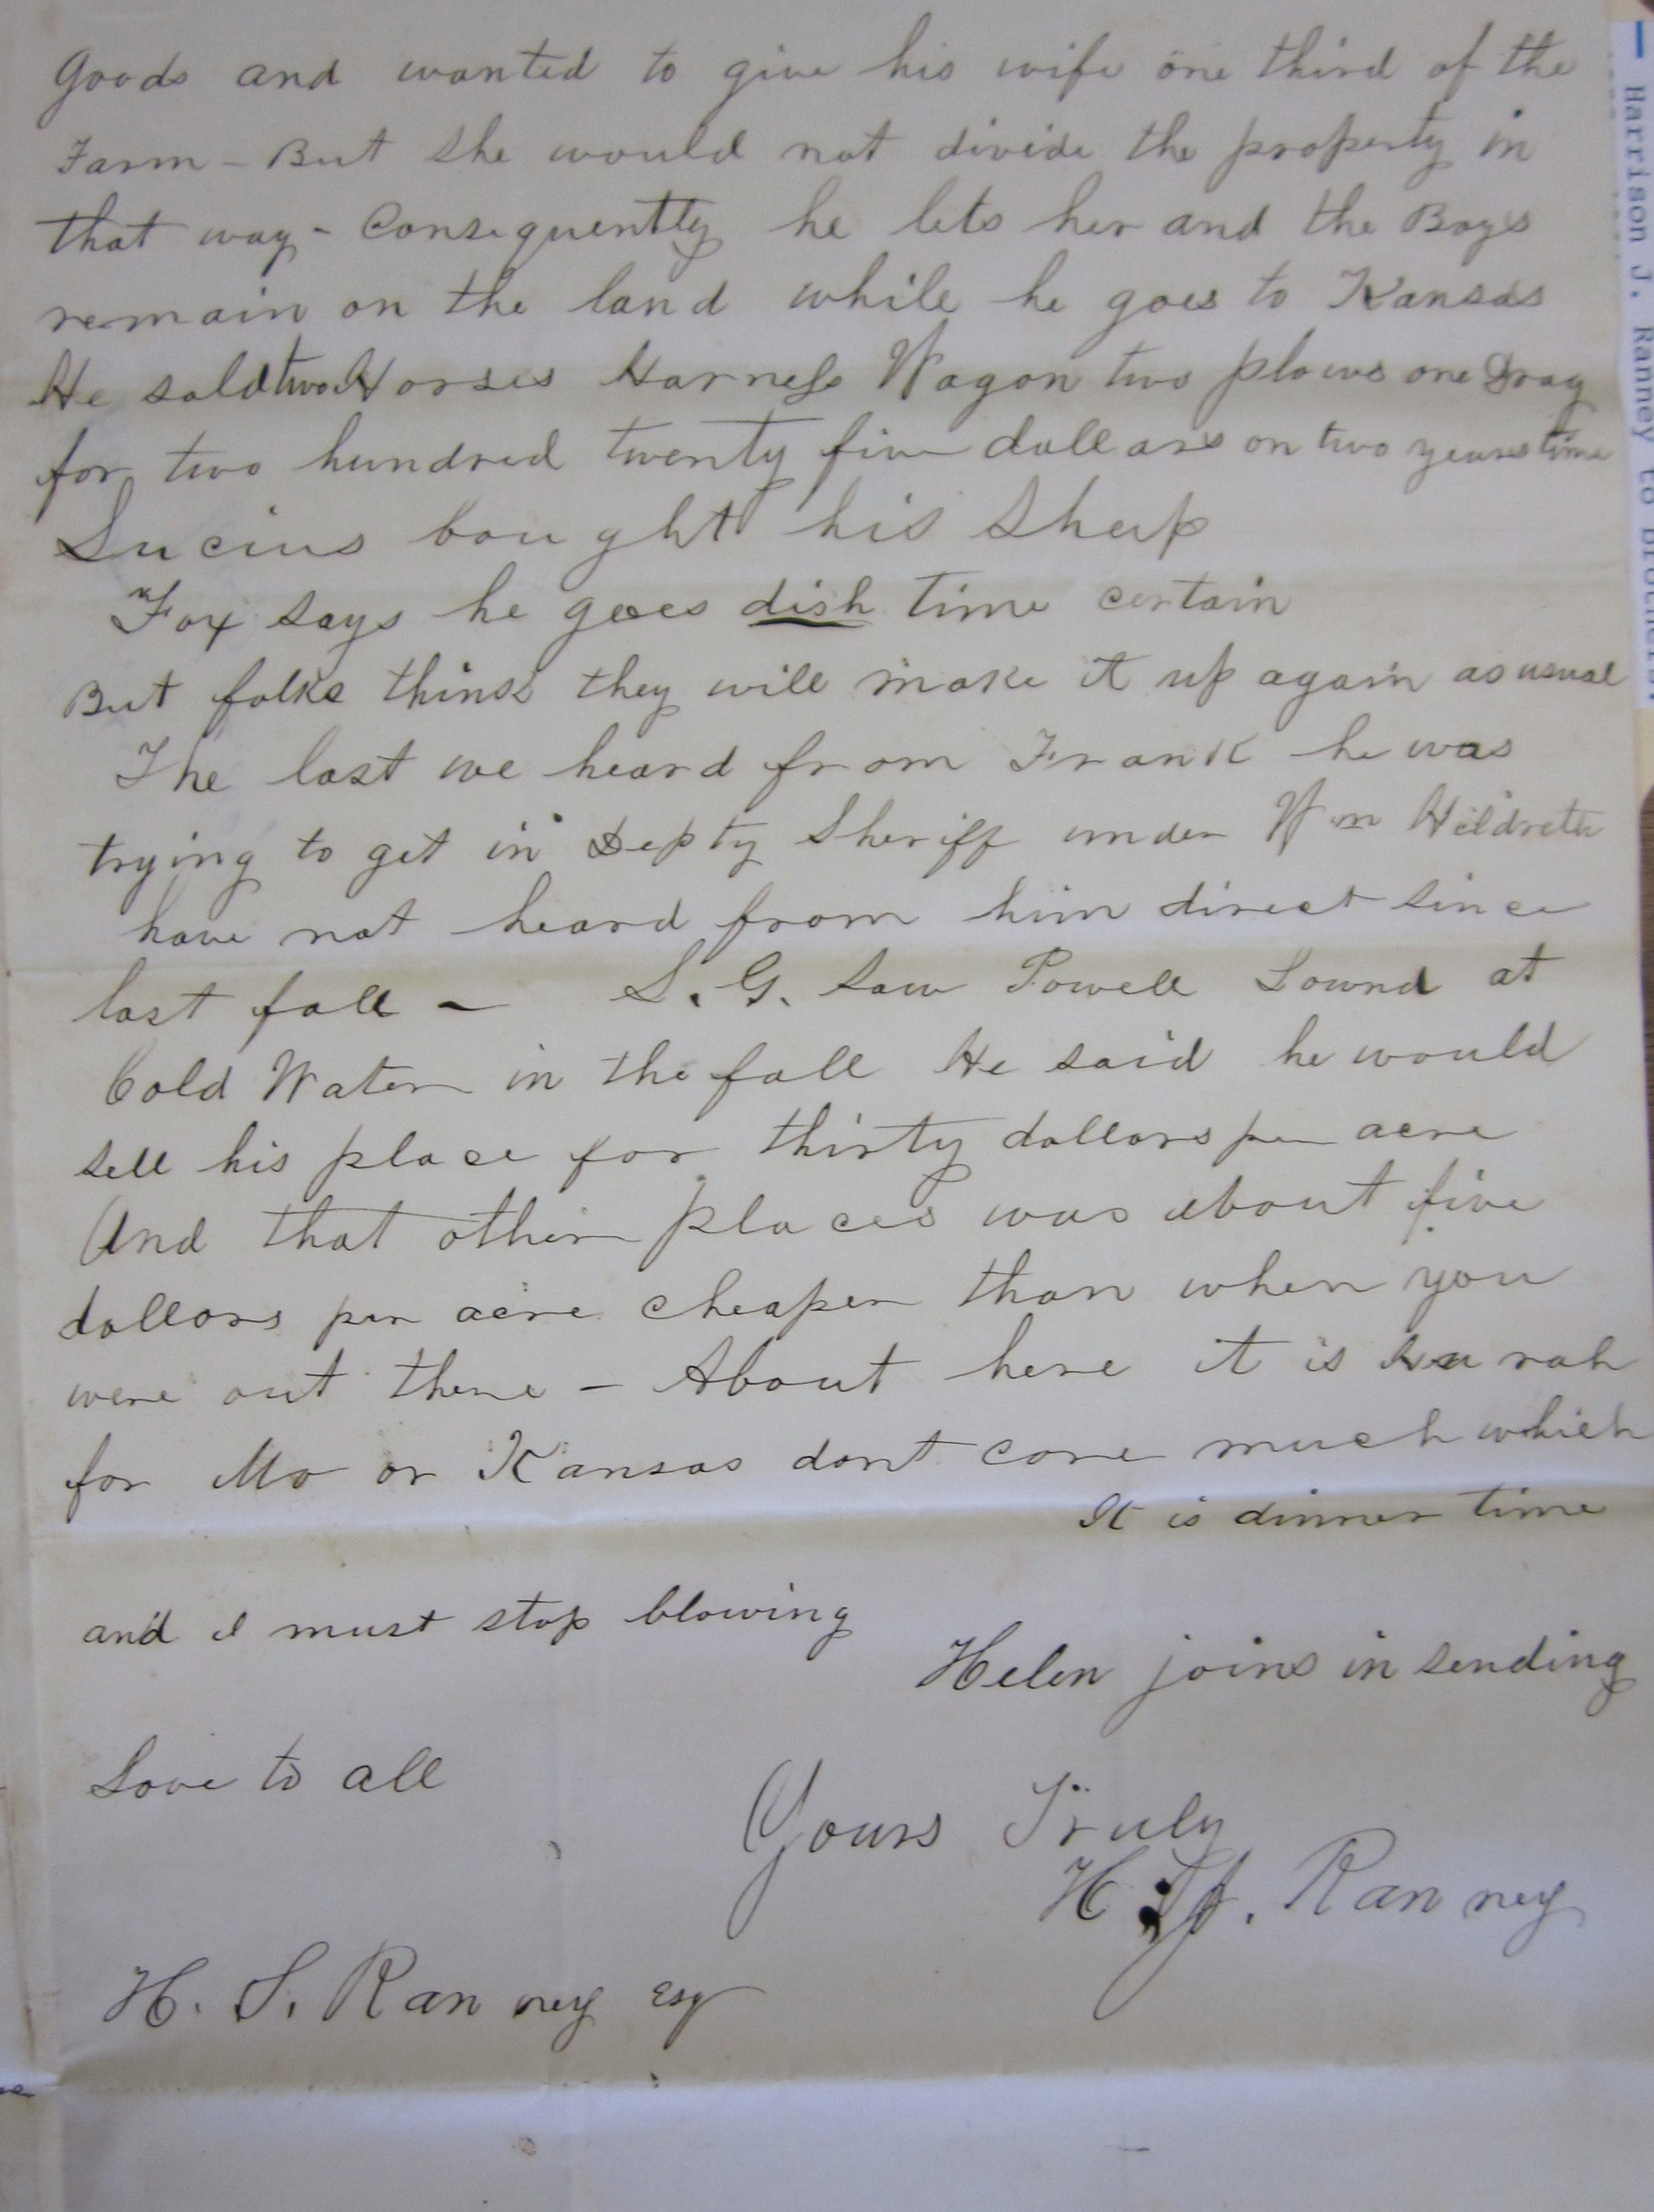 Goods and wanted to give his wife one third of the
Farm - But she would not divide the property in
that way - Consequently he lets her and the Boys
remain on the land while he goes to Kansas
He sold two Horses Harness Wagon two plows one Drag
for two hundred twenty five dollars on two years time
Lucius bought his Sheep
Fox says he goes dish time certain
But folks think they will make it up again as usual
The last we heard from Frank he was
trying to get in Depty Sheriff under Wm Hildreth
have not heard from him direct since
last fall - L. G. Saw Powell Lownd at
Cold Water in the fall He said he would
sell his place for thirty dollars per acre
And that other places was about five
dollars per acre cheaper than when you
were out there - About here it is hu rah
for Mo or Kansas dont care much which
It is dinner time
and I must stop blowing
Helen joins in sending
Love to all
Yours Truly
H. J. Ranney
H. S. Ranney Esq
Harrison J. Ranney to Brother